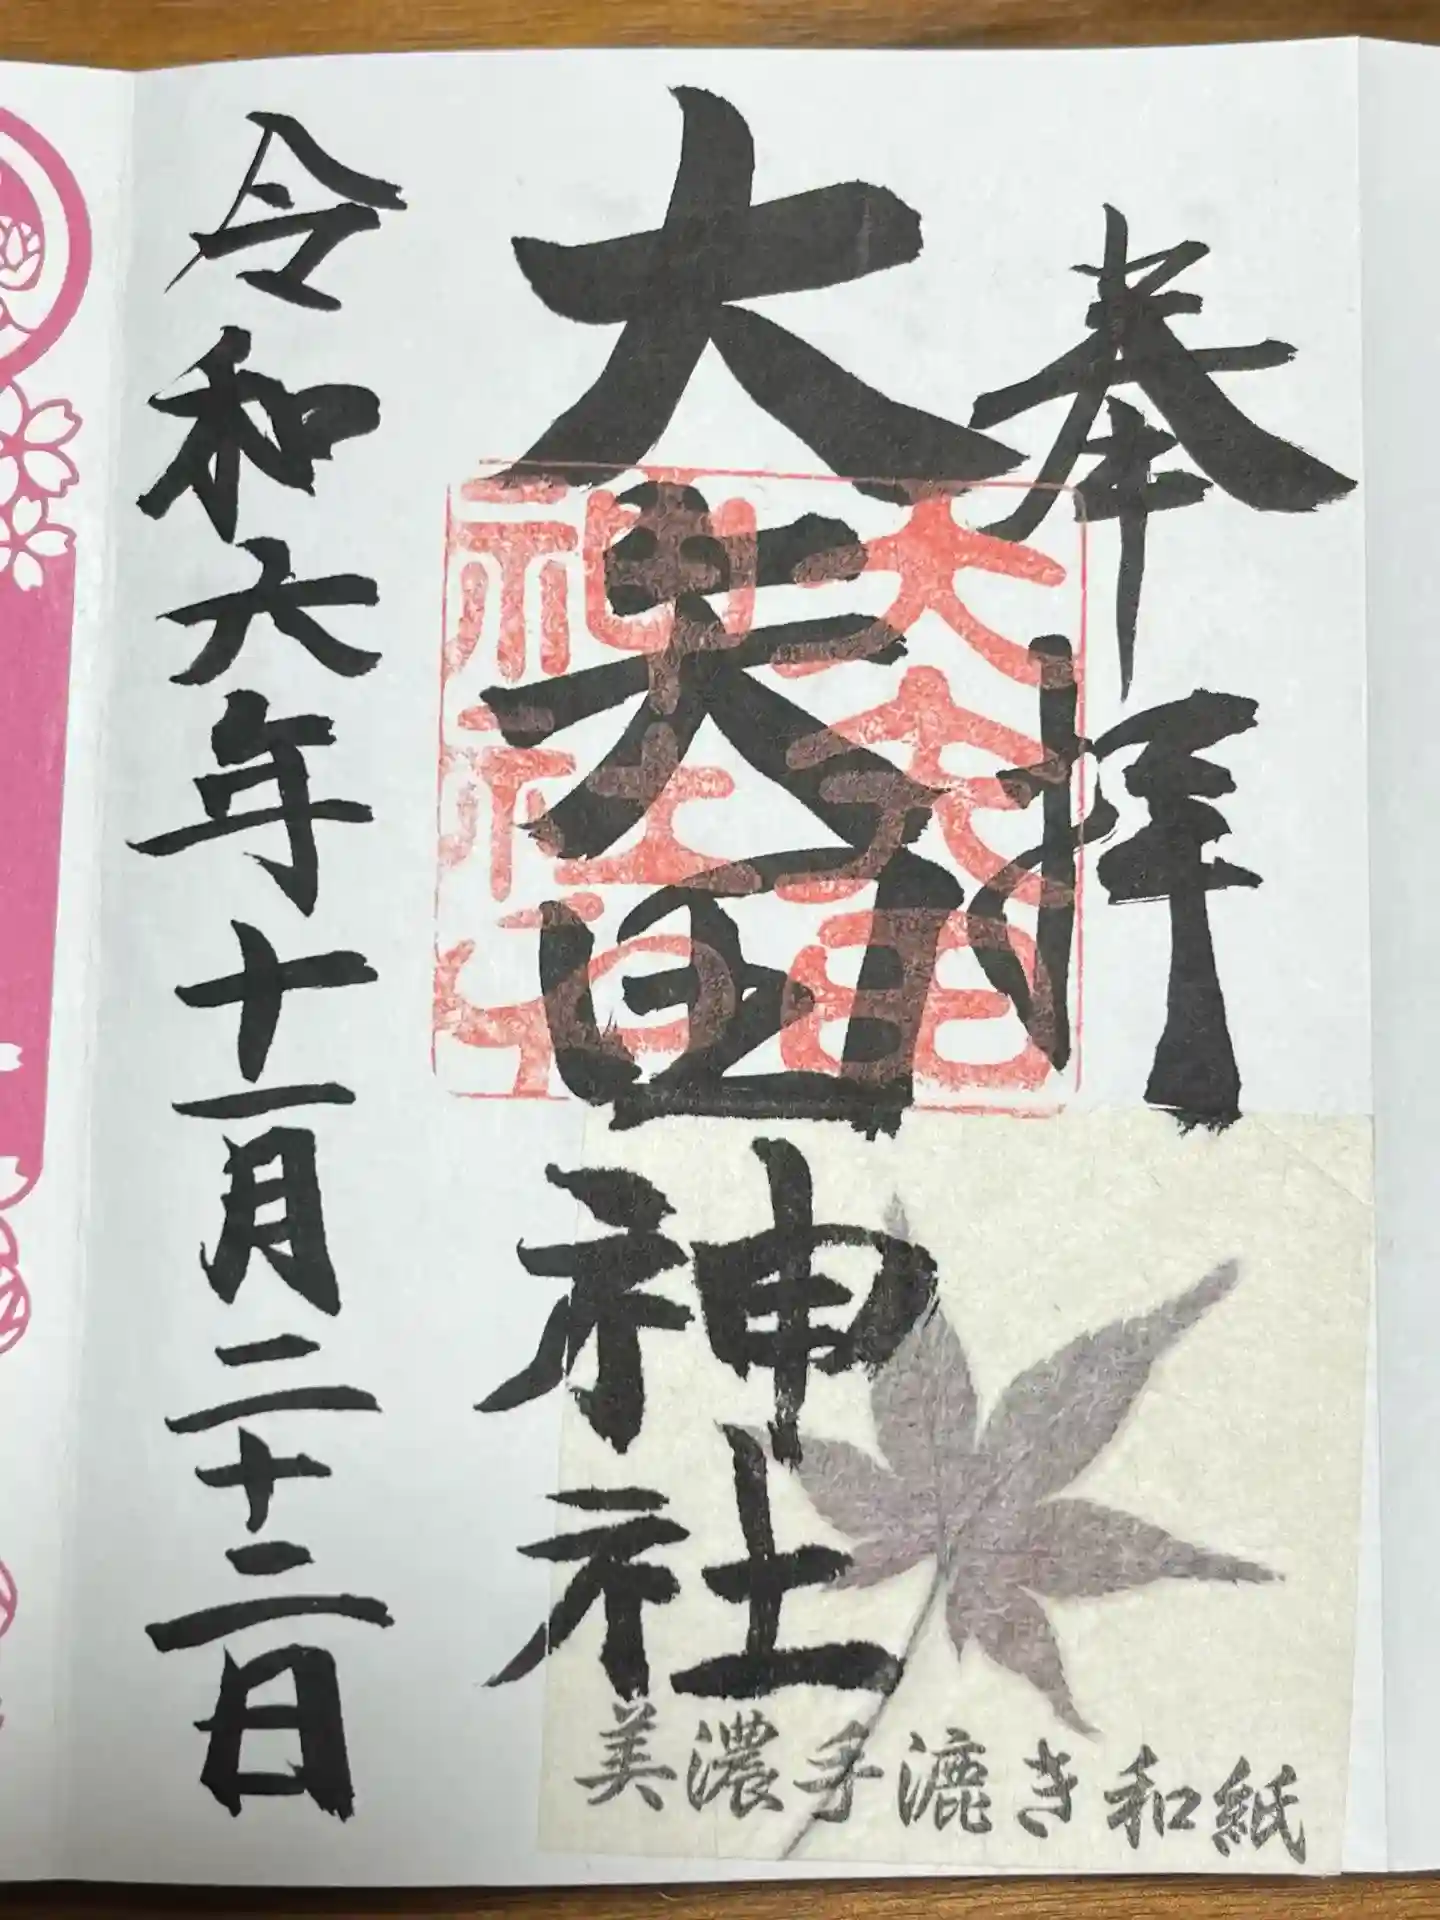 奉拝
大矢田神社
大矢田
神社印
令和六年十一月二十二日
美濃手漉き和紙